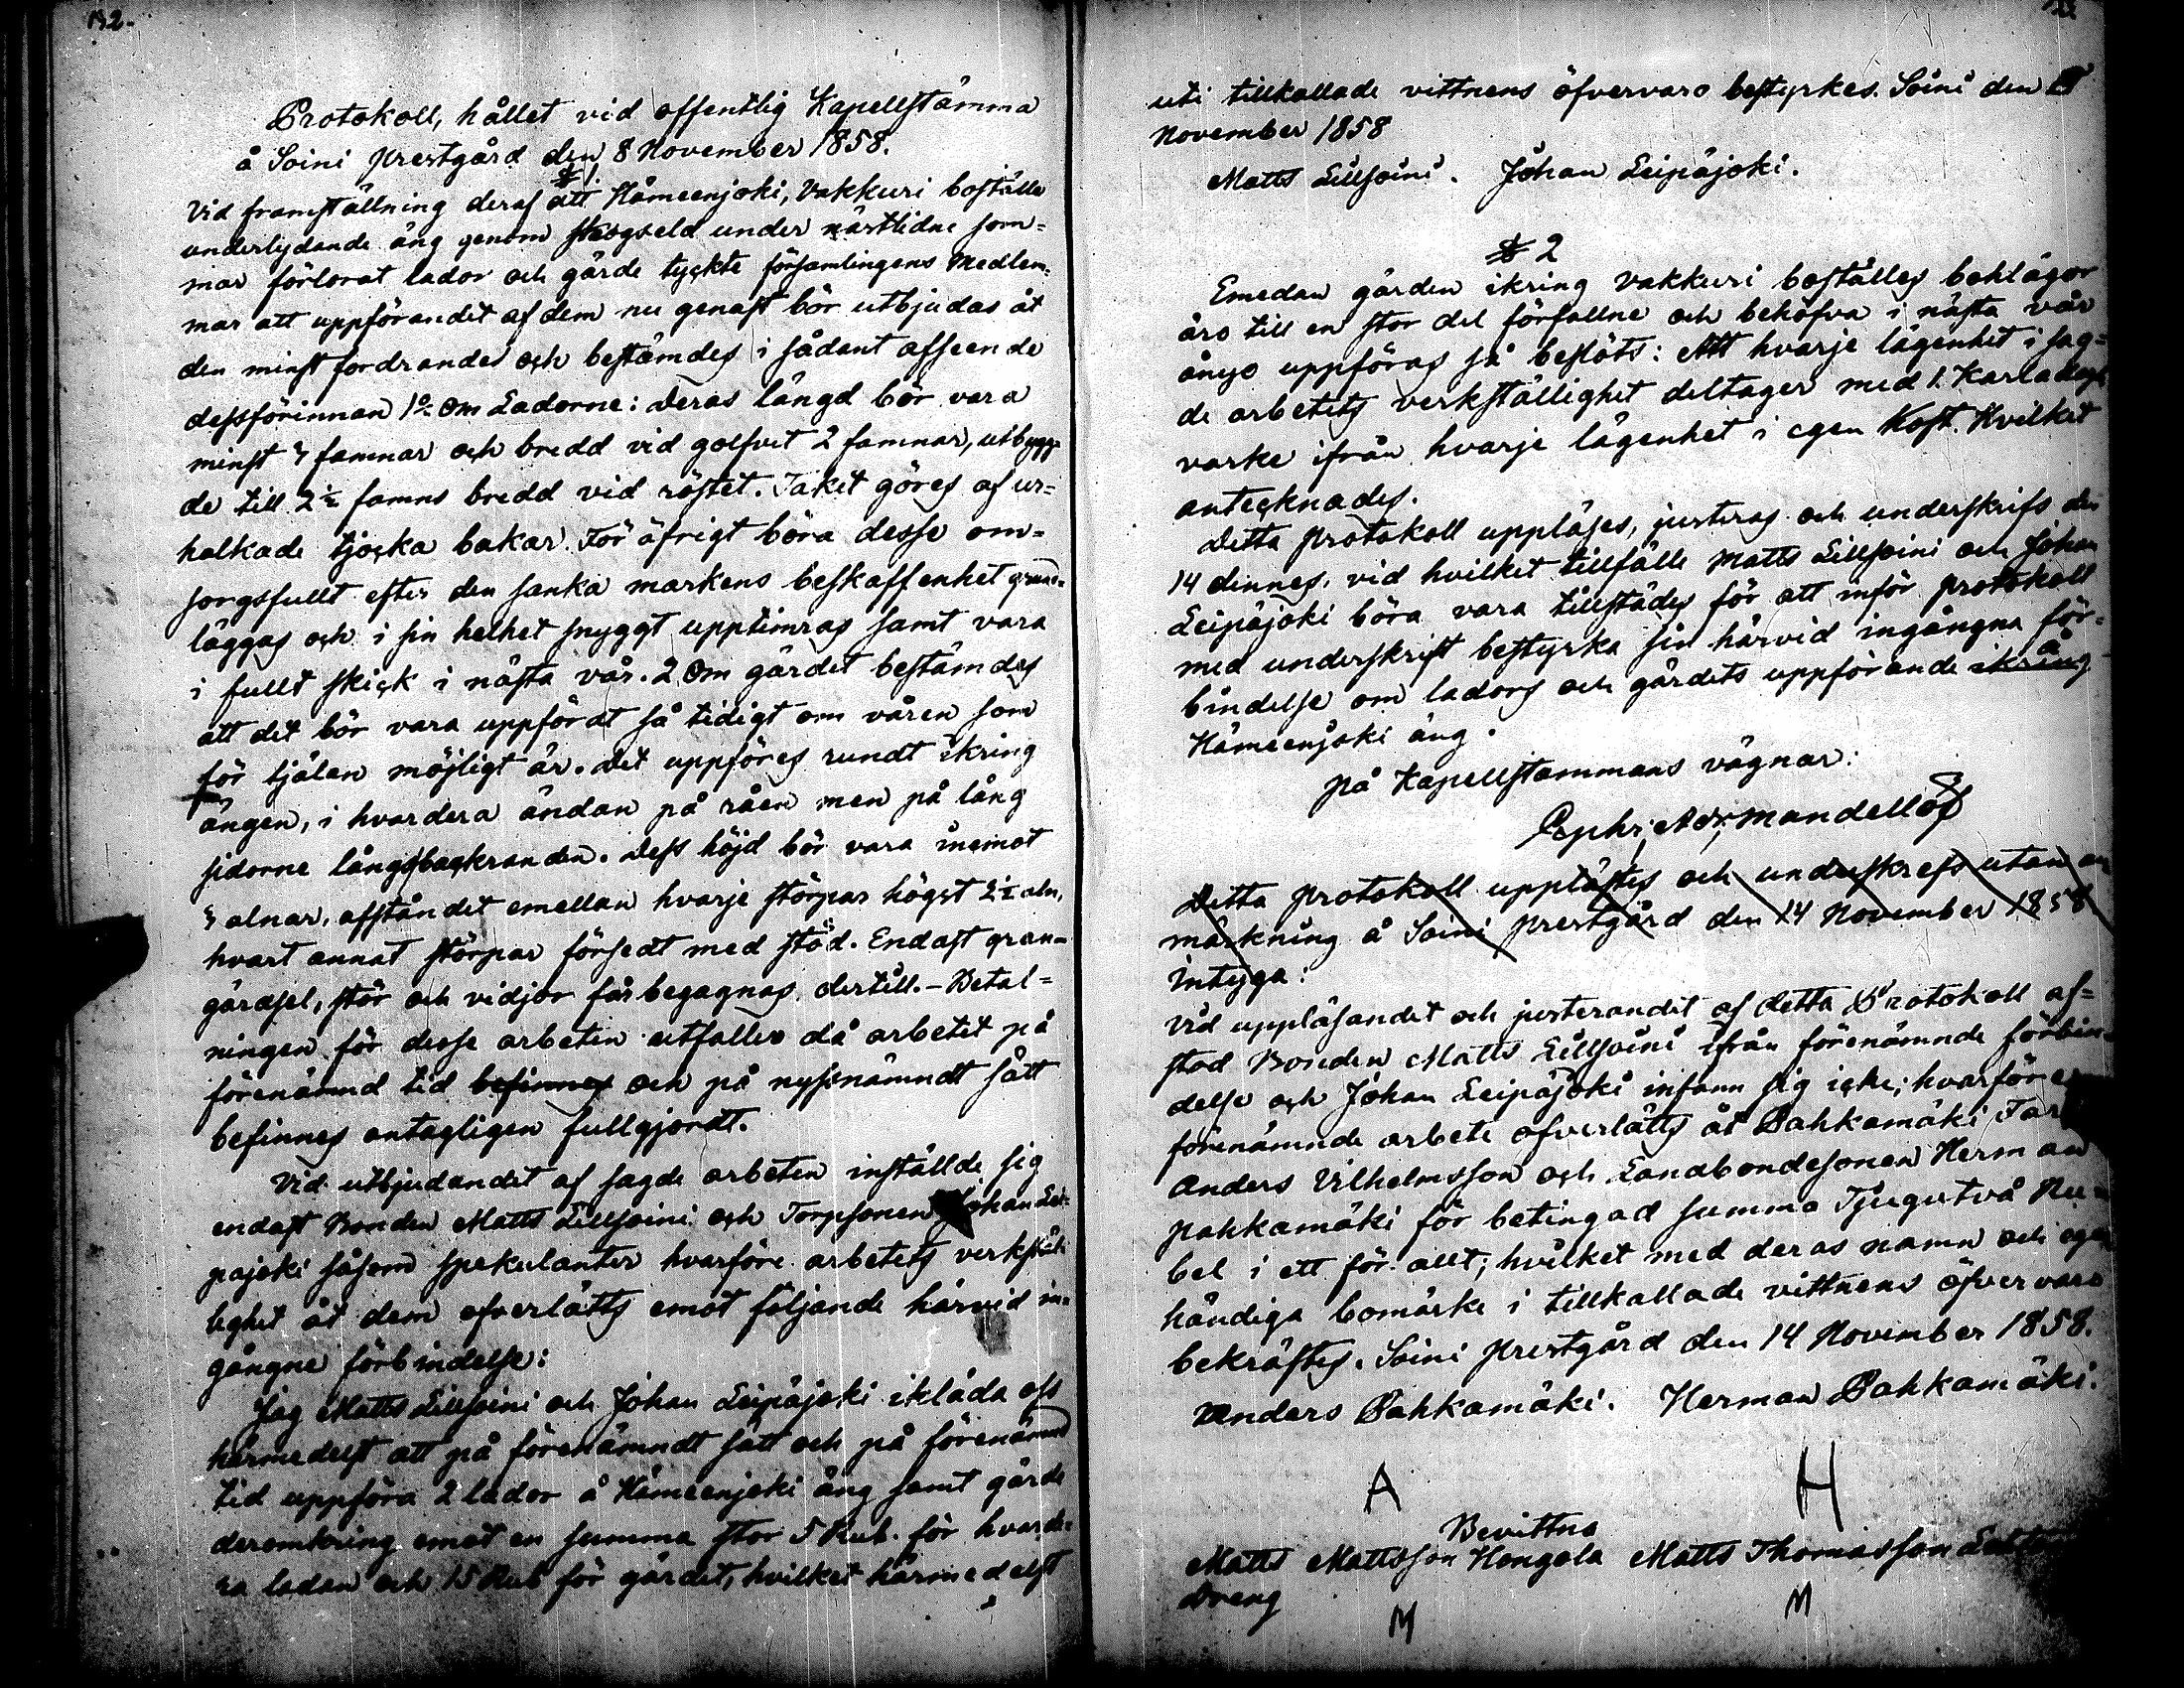 132.
Protokoll, hållet vid offentlig Kapellstämma
å Soini prestgård den 8 November 1858.
§ 1.
Vid framställning deraf att Hämeenjoki, Vakkuri boställe
underlydande äng genom skogseld under nästlidne som-
mar förlorat lador och gärde tyckte församlingens Medlem-
mar att uppförandet af dem nu genast bör utbjudas åt
den minst fordrande och bestämdes i sådant afseende
dessförinnan 1o Om Ladorne: Deras längd bör vara
minst 3 famnar och bredd vid golfvet 2 famnar, utbygg-
de till 2½ famns bredd vid röstet. Taket göres af ur-
halkade tjocka bakar. För öfrigt böra desse om-
sorgsfullt efter den sanka markens beskaffenhet grund-
läggas och i sin helhet snyggt upptimras samt vara
i fullt skick i nästa vår. 2 Om gärdet bestämdes
att det bör vara uppfördt så tidigt om våren som
för tjälen möjligt är. Det uppföres rundt ikring
ängen, i hvardera ändan på råen men på lång
sidorne längs backranden. Dess höjd bör vara inemot
3 alnar, afståndet emellan hvarje störpar högst 2½ aln,
hvart annat störpar försedt med stöd. Endast gran-
gärdsel, stör och vidjor får begagnas dertill. - Betal-
ningen för desse arbeten utfaller då arbetet på
förenämnd tid befinnes och på nyssnämndt sätt
befinnes antagligen fullgjordt.
Vid utbjudandet af sagde arbeten inställde sig
endast Bonden Matts Lillsoini och Torpsonen Johan Lei-
pajoki såsom spekulanter hvarföre arbetets verkstäl-
lighet åt dem öfverlätts emot följande härvid in-
gångne förbindelse:
Jag Matts Lillsoini och Johan Leipäjoki ikläda oss
härmedelst att på förenämndt sätt och på förenämnd
tid uppföra 2 lador å Hämeenjoki äng samt gärde
deromkring emot en summa stor 5 Rub. för hvarde-
ra ladan och 15 Rub för gärdet, hvilket härmedelst
uti tillkallade vittnens öfvervaro bestyrkes. Soini den
November 1858
Matts Lillsoini. Johan Leipäjoki.
§ 2
Emedan gärden ikring Vakkuri boställes bohlägor
äro till en stor del förfallne och behöfva i nästa vår
ånyo uppföras så beslöts: Att hvarje lägenhet i sag-
de arbetets verkställighet deltager med 1. Karla dags
varke ifrån hvarje lägenhet i egen Kost. Hvilket
antecknades.
Detta protokoll uppläses, justeras och underskrifs den
14 dennes, vid hvilket tillfälle Matts Lillsoini och Johan
Leipäjoki böra vara tillstädes för att inför protokoll
med underskrift bestyrka sin härvid ingångna för-
bindelse om ladors och gärdets uppförande ikring å
Hämeenjoki äng.
På Kapellstämmans vägnar:
Mandellöf
Detta protokoll upplästes och underskrefs utan an
märkning å Soini prestgård den 14 November 1858
intyga:
Vid uppläsandet och justerandet af detta Protokoll af-
stod Bonden Matts Lillsoini ifrån förenämnde förbin-
delse och Johan Leipäjoki infann sig icke; hvarföre
förenämnde arbete öfverlätts åt Pahkamäki
Anders Vilhelmsson och Landbondesonen Herman
Pahkamäki för betingad summa Tjugutvå Ru-
bel i ett för allt; hvilket med deras namn och egen
händiga bomärke i tillkallade vittnens öfvervaro
bekräftes. Soini prestgård den 14 November 1858.
Anders Pahkamäki. Herman Pahkamäki.
A H
Bevittna
Matts Mattsson Hongola Matts Thomasson
Dreng
M M